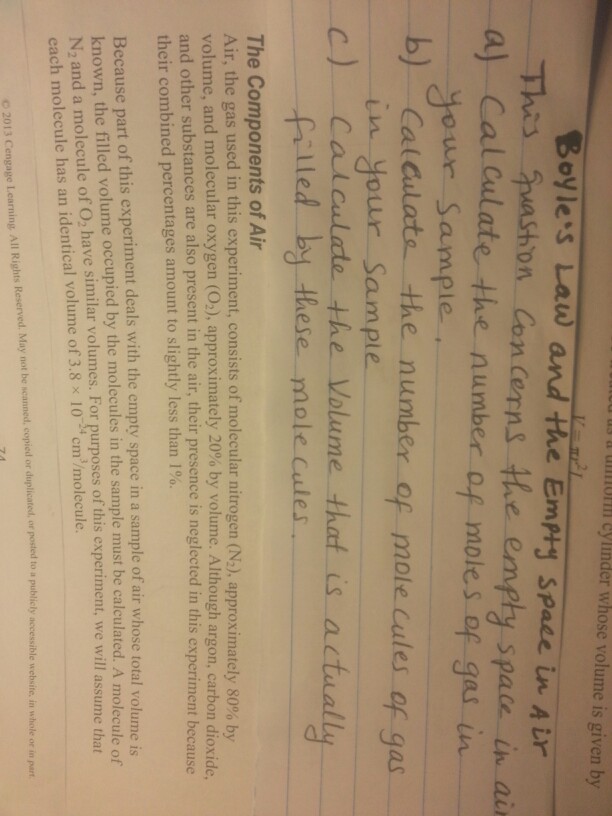 cylinder whose volume is given by
V = πr²l
Boyle's Law and the Empty Space in Air
This quastion Concerns the empty space in air
a) Calculate the number of moles of gas in
your sample.
b) Calculate the number of molecules of gas
in your sample
c) Calculate the Volume that is actually
filled by these molecules.
The Components of Air
Air, the gas used in this experiment, consists of molecular nitrogen (N₂), approximately 80% by
volume, and molecular oxygen (O₂), approximately 20% by volume. Although argon, carbon dioxide,
and other substances are also present in the air, their presence is neglected in this experiment because
their combined percentages amount to slightly less than 1%.
Because part of this experiment deals with the empty space in a sample of air whose total volume is
known, the filled volume occupied by the molecules in the sample must be calculated. A molecule of
N₂ and a molecule of O₂ have similar volumes. For purposes of this experiment, we will assume that
each molecule has an identical volume of 3.8 × 10⁻²⁴ cm³/molecule.
© 2013 Cengage Learning. All Rights Reserved. May not be scanned, copied or duplicated, or posted to a publicly accessible website, in whole or in part.
74